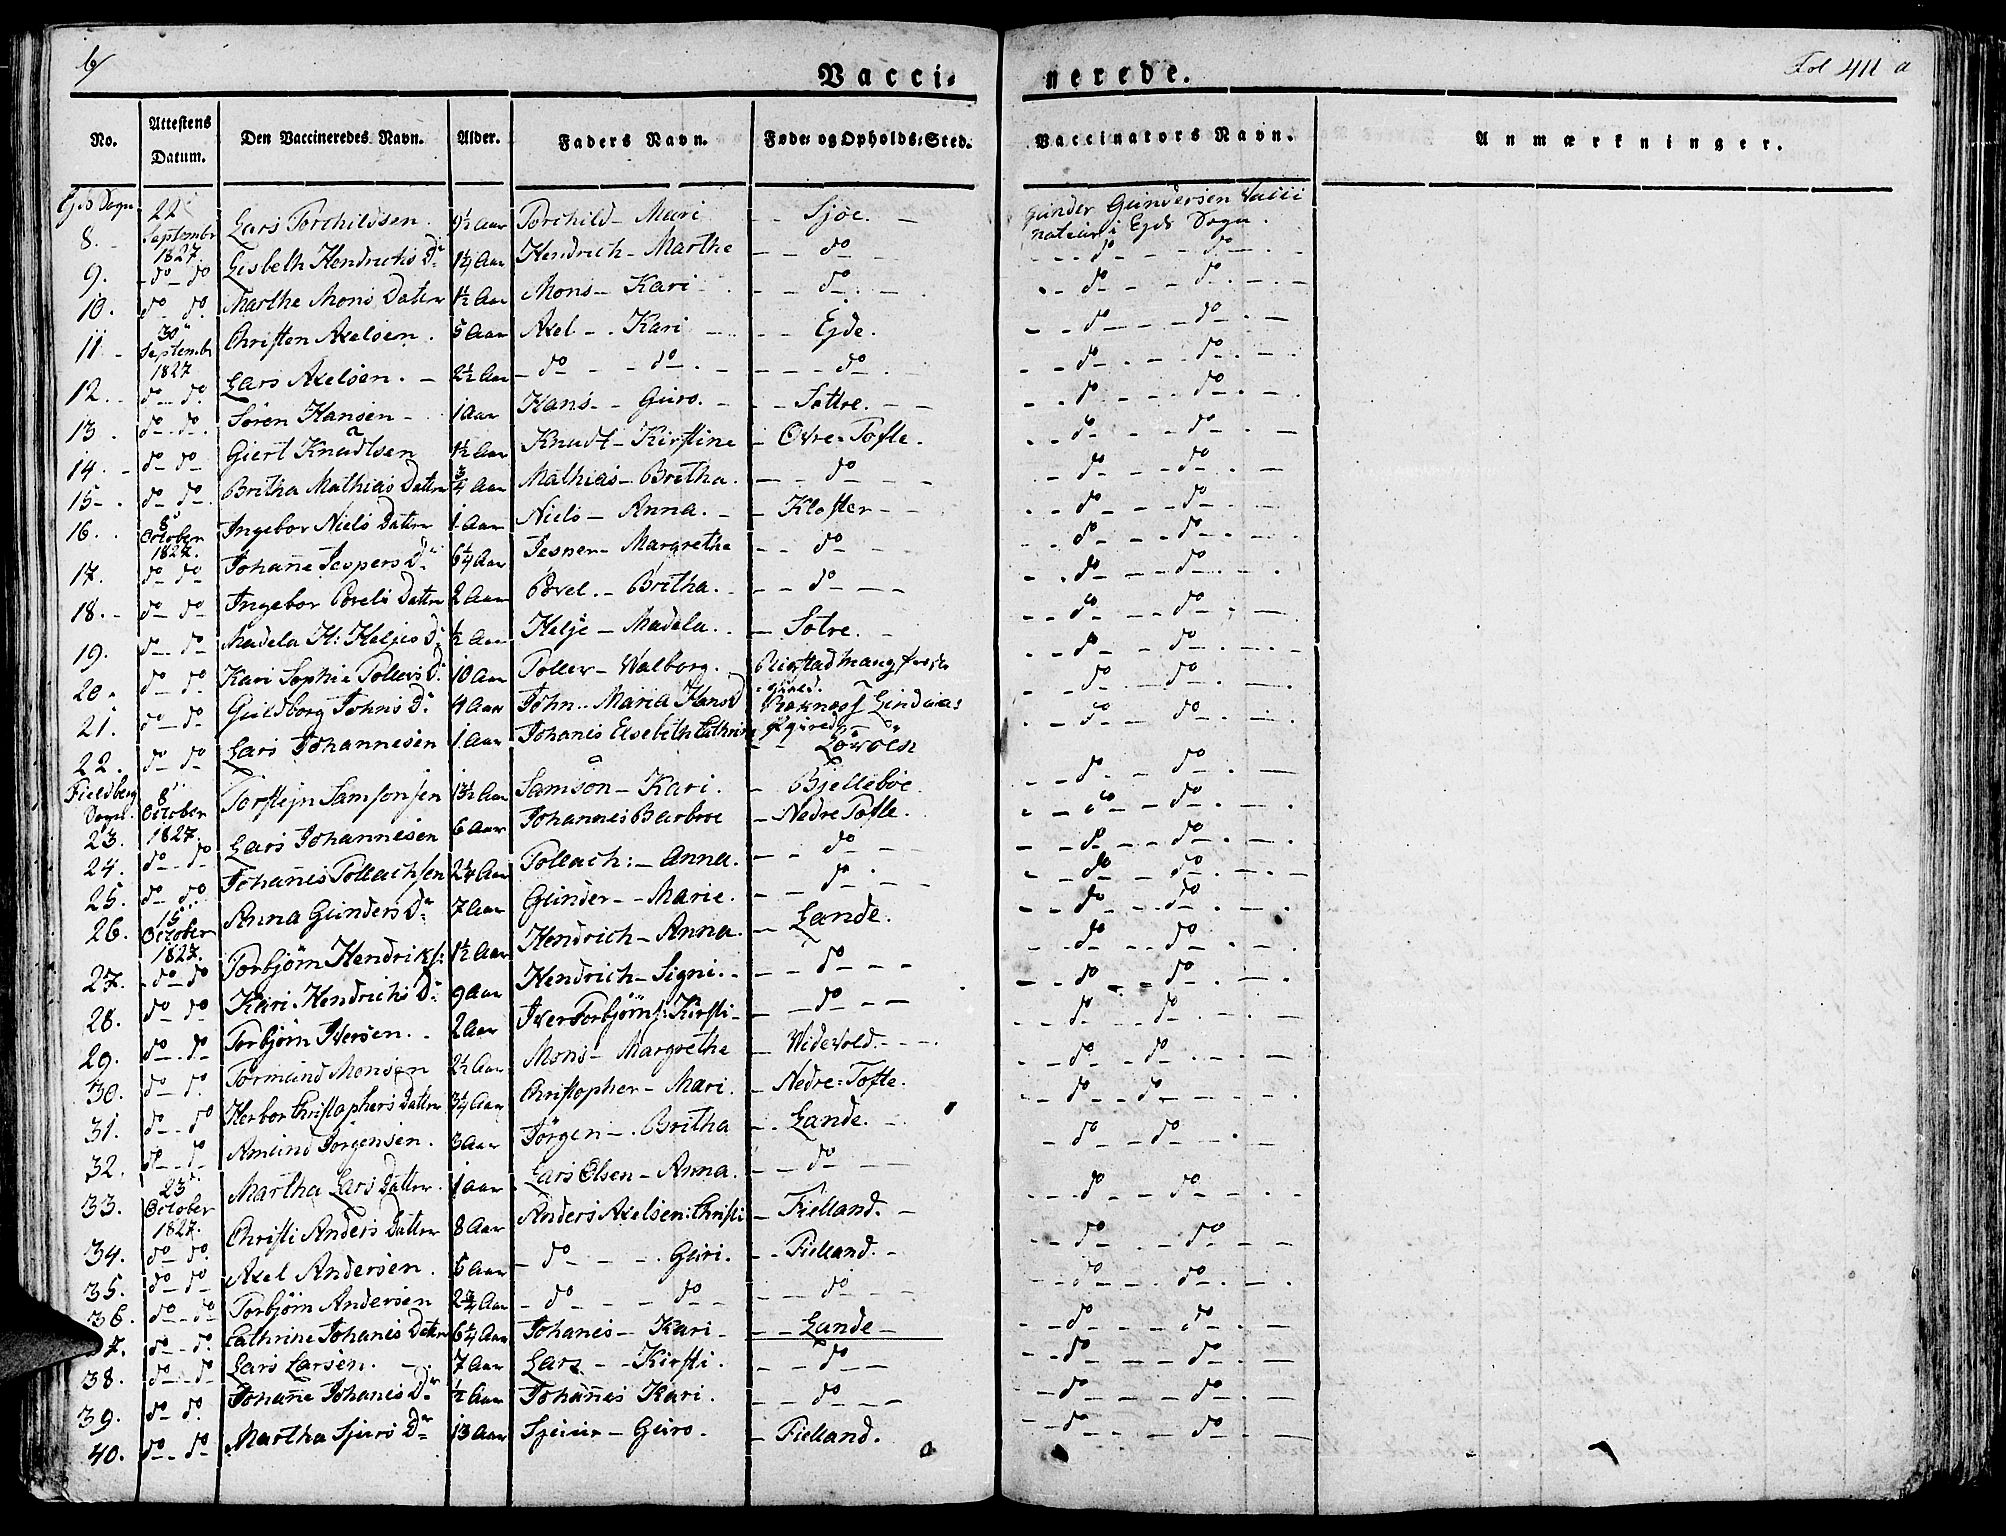 b/
Vacci-nerede.
Fol 411 a
No. Attestens Datum. Den Vaccineredes Navn. Alder. Faders Navn. Føde- og Opholds-Sted. Vaccinators Navn. Anmærkninger.
8. 22 September 1827. Lars Torchildsen 9½ Aar Torchild - Mari - - Sjøe. - Gunder Gundersen Vacci nateur i Egds Sogn.
9. - do - do Lisbeth Hendrichs Dr 1¼ Aar Hendrich - Marthe - - do - - do - - do - -
10. do do. Marthe Mons Datter 1½ Aar Mons - Kari - - do - - do - - do - -
11. - 30 Septembr 1827 Christen Axelsen. 5 Aar Axel - - Kari - - - Egde. - - do - - do - -
12. - do - do. Lars Axelsen. - 2½ Aar - do - - do - - - - do - - - do - - do - -
13. do - do. Søren Hansen - 1 Aar Hans - - Guro. - - - Søttre. - - - do - - do - -
14. - do - do Giert Knudtsen 1½ Aar Knudt - Kirstine - Øvre-Tofte. - do - - do - -
15 - . do - do. Britha Mathias Datter ¾ Aar Mathias - Britha. - - do - - - do - - do - -
16. . 8 October 1827. Ingebor Niels Datter 1. Aar Niels - Anna. - - Kloster - - - do - - do - -
17. do - do Johanne Jespers Dr 6¼ Aar Jesper - Margrethe - - do - - - do - - do - -
18. - do - do Ingebor Povels Datter 2 Aar Povel. - Britha. - - - do - - - do - - do - -
19. do - do - Madela H: Heljes Dr ½ Aar Helje - Madela. - - Sotre. - - do - - do - -
20. do - do Kari Sophie Tollers Dr 10 Aar Toller - Walborg. - do - - do - -
21. do - do Guldborg Johns Dr 4 Aar John. - Maria Hansd - do - - do - -
22. do - do Lars Johannesen 1. Aar Johanis Elsebeth Cathrine - - do - - do - -
Fieldberg Sogn.
23. 8 October 1827. Torstejn Samsonsen 13½ Aar Samson - Kari. - Bjelleboe. - do - - do - -
24. do - do Lars Johannesen 6 Aar Johannes Barbroe - Nedre Tofte. - do - - do - -
25. do - do Johanes Tollachsen 2¼ Aar Tollach: - Anna. - - do - - - do - - do - -
26. 15 October 1827. Anna Gunders Dr 7 Aar Gunder - - Marie. - - do - - - do - - do - -
27. - do - do Torbjørn Hendriks: 1½ Aar Hendrich - Anna. - Lande. - do - - do - -
28. do - do Kari Hendrichs Dr 9 Aar Hendrich - Signi. - - - do - - - do - - do - -
29. do - do Torbjørn Iversen. - 2 Aar Iver Torbjørns: Kirsti - - do - - - do - - do - -
30. do - do. Tormund Monsen 2½ Aar Mons - Margrethe - Widevold. - - - do - - do - -
31. do - do Herbor Christophers Datter 3¼ Aar Christopher - Mari. - Nedre-Tofte. - do - - do - -
32. do - do. Amund Jørgensen. 3 Aar Jørgen - . Britha - . Lande. - - do - - do - -
33. 23 October 1827. Martha Lars Datter. 1 Aar Lars Olsen - Anna. - - do - - - do - - do - -
34. do - do. Christi Anders Datter 8 Aar Anders Axelsen: Christi - Fielland. - - do - - do - -
35. do - do. Axel Andersen. 5 Aar - do - - - Guri. - - Fielland. - - do - - do - -
36. do - do Torbjørn Andersen 2¾ Aar - do - - do - - - do - - - do - - do - -
37. do - do. Cathrine Johanes Datter 6¼ Aar Johanes - Kari - - - Lande - - do - - do - -
38. do - do Lars Larsen. - 7 Aar Lars - - Kirsti. - - do - - - do - - do - -
39. do - do. Johane Johanes Dr ½ Aar Johanes Kari. - - do - - - do - - do - -
40. do - do Martha Sjurs Dr 13 Aar Sjuur - Guro. - Fielland. - do - - do - -